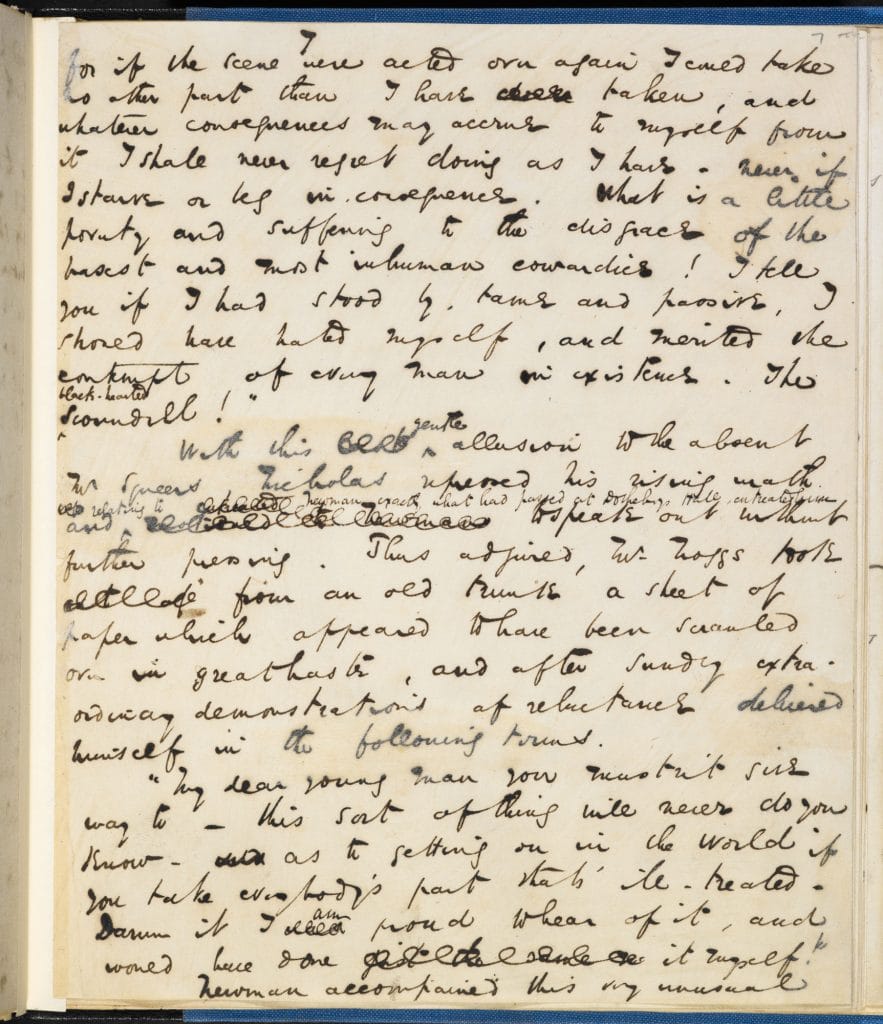 7
for if the scene were acted over again I could take
no other part than I have taken, and
whatever consequences may accrue to myself from
it I shall never regret doing as I have - never, if
I starve or beg in consequence. What is a little
poverty and suffering to the disgrace of the
basest and most inhuman cowardice! I tell
you if I had stood by, tame and passive, I
should have hated myself, and merited the
contempt of every man in existence. The
black-hearted
Scoundrel!"
gentle
With this allusion to the absent
Mr Squeers Nicholas repressed his rising wrath
relating to Newman exactly what had passed at Dotheboys Hall, entreated him
and to speak out without
further pressing. Thus adjured, Mr Noggs took
from an old trunk a sheet of
paper which appeared to have been scrawled
over in great haste, and after sundry extra-
ordinary demonstrations of reluctance delivered
himself in the following terms.
"My dear young man you mustn't give
way to - this sort of thing will never do you
know - as to getting on in the world if
you take everybody's part that's ill-treated -
am
Damn it I proud to hear of it, and
would have done it myself!"
Newman accompanied this very unusual